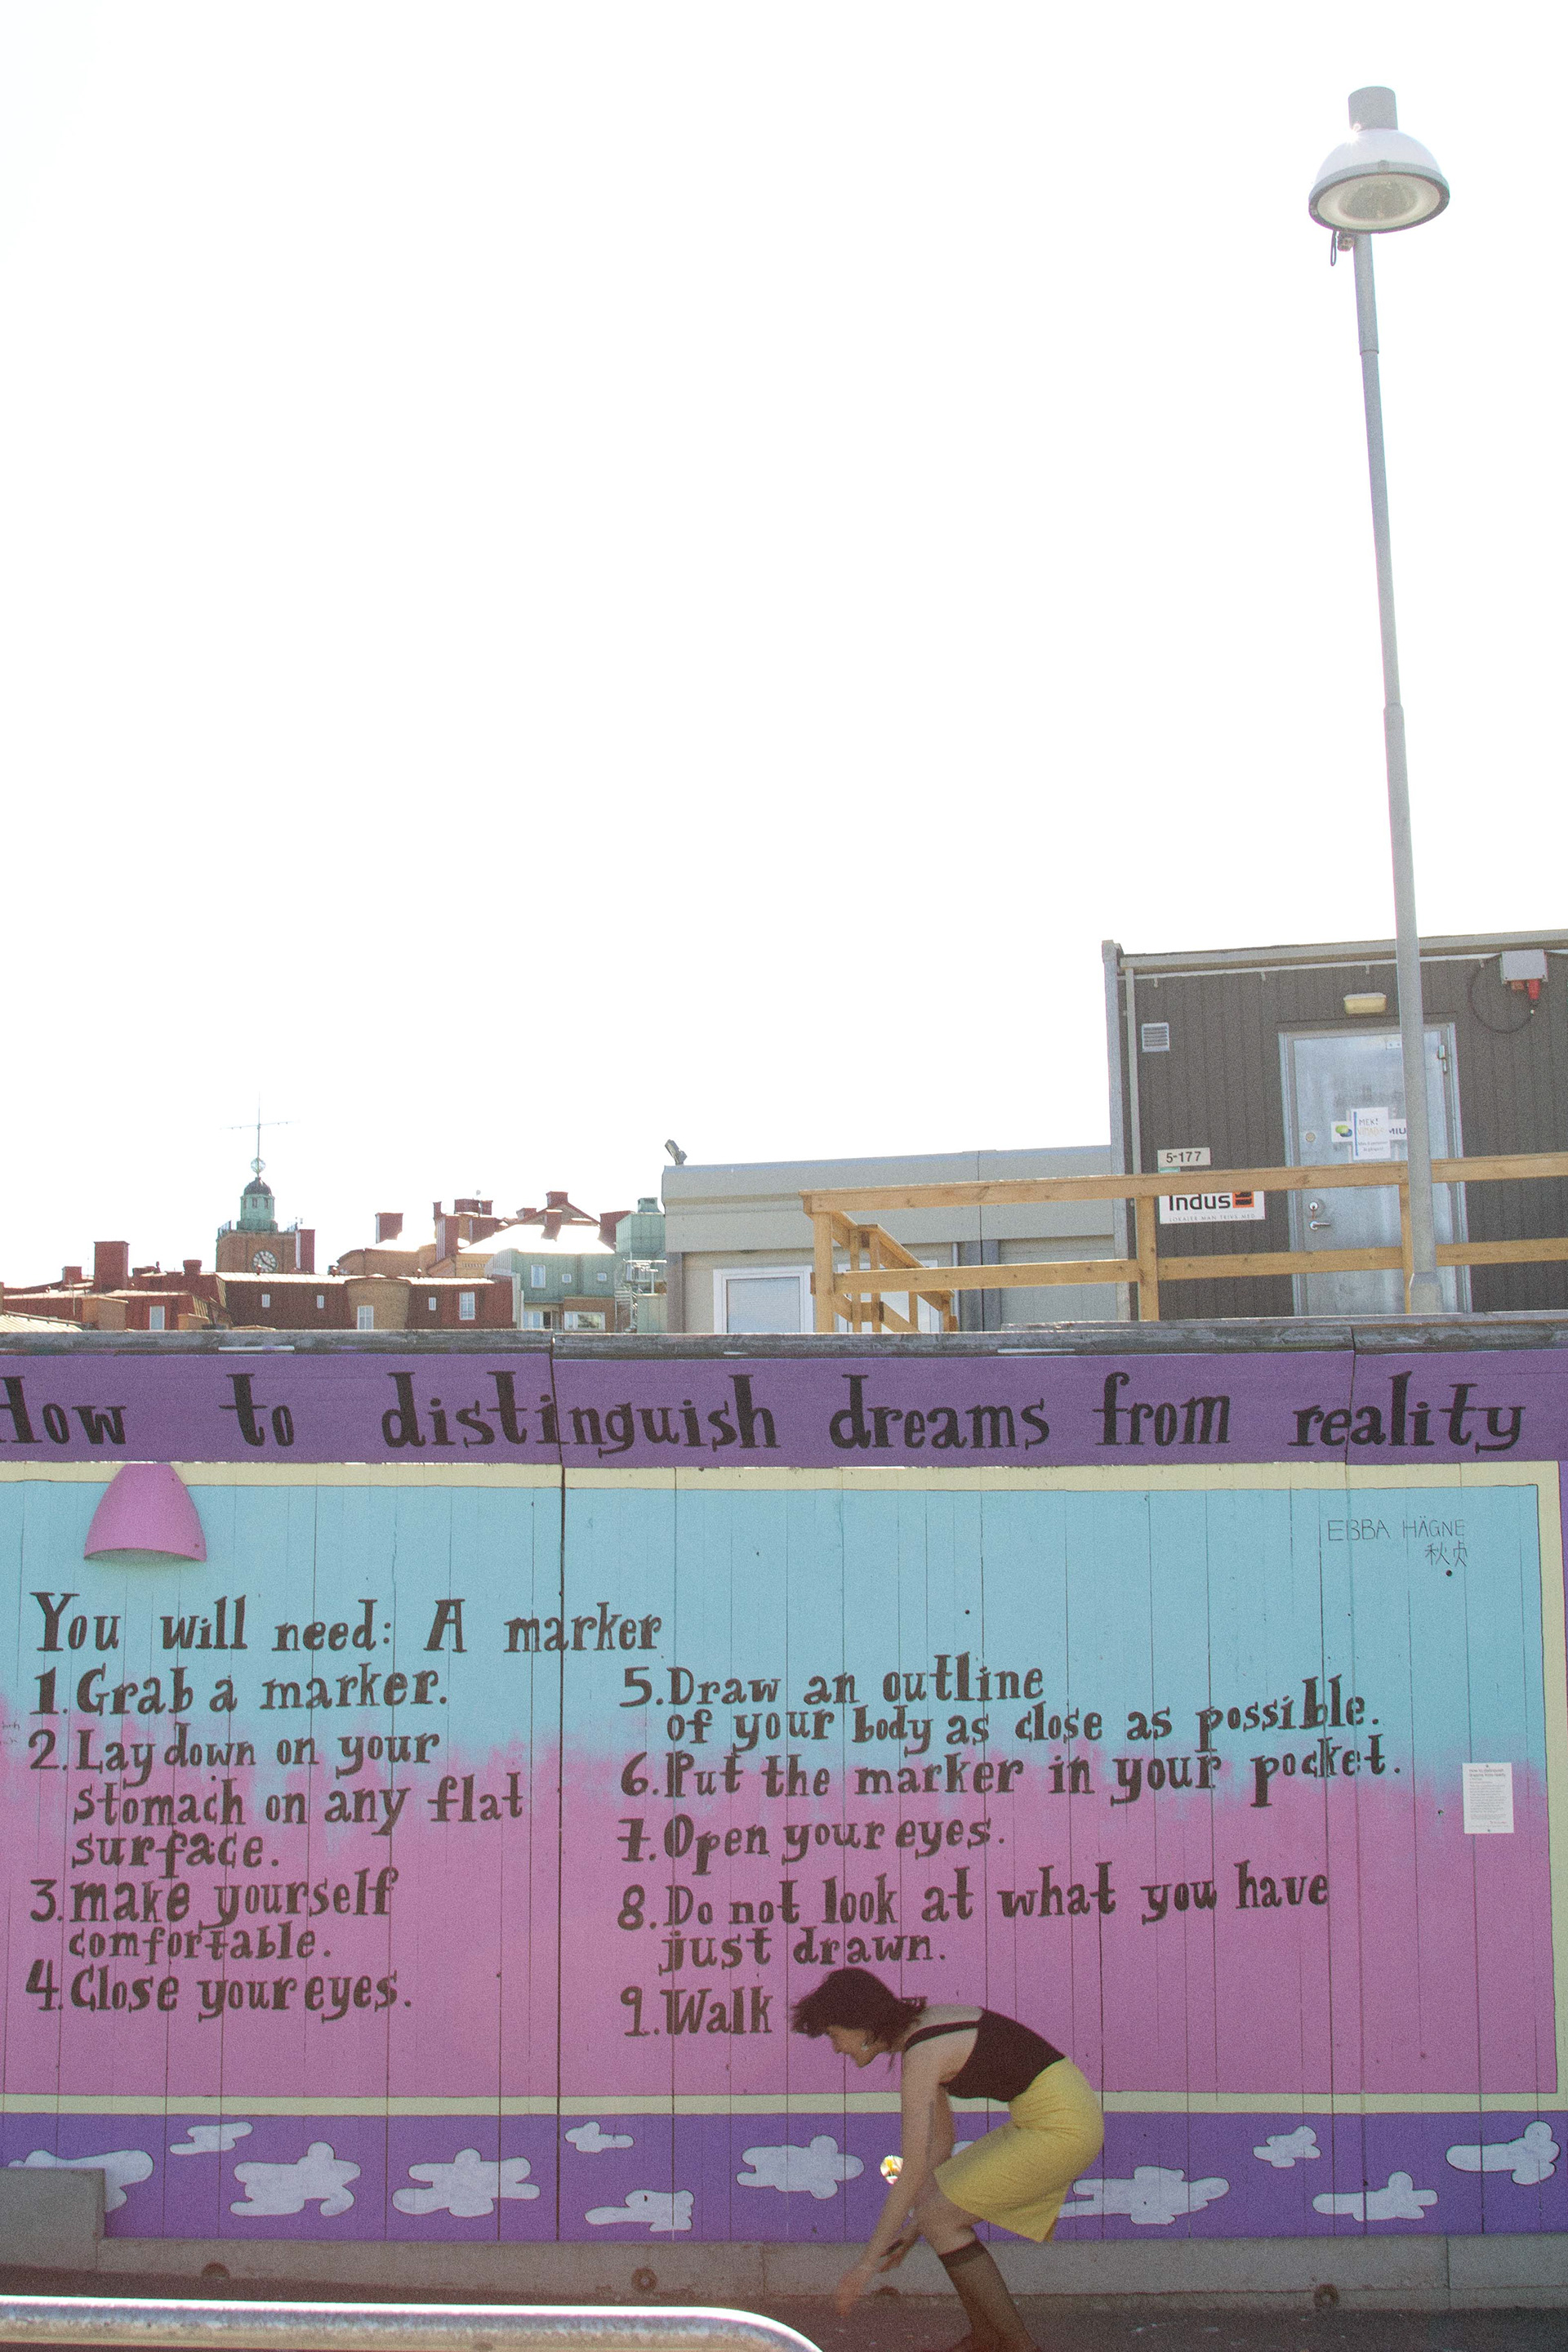 5-177
Indus
LOKALER MAN TRIVS MED
How to distinguish dreams from reality
EBBA HÄGNE
秋贞
You will need: A marker
1. Grab a marker.
2. Lay down on your
stomach on any flat
surface.
3. make yourself
comfortable.
4. Close your eyes.
5. Draw an outline
of your body as close as possible.
6. Put the marker in your pocket.
7. Open your eyes.
8. Do not look at what you have
just drawn.
9. Walk